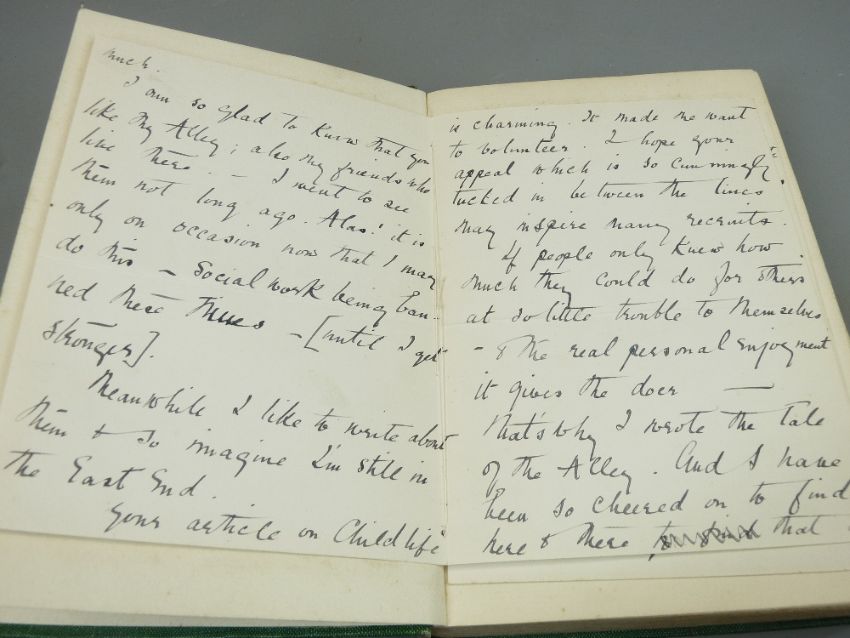 much.
I am so glad to know that you
like my Alley; also my friends who
live there. — I went to see
them not long ago. Alas! it is
only on occasion now that I may
do this — Social work being ban-
ned these times — [until I get
stronger].
Meanwhile I like to write about
them & so imagine I'm still in
the East End.
Your article on Child life
is charming. It made me want
to volunteer. I hope your
appeal which is so cunningly
tucked in between the lines
may inspire many recruits.
If people only knew how
much they could do for others
at so little trouble to themselves
— & the real personal enjoyment
it gives the doer —
That's why I wrote the Tale
of the Alley. And I have
been so cheered on to find
here & there that